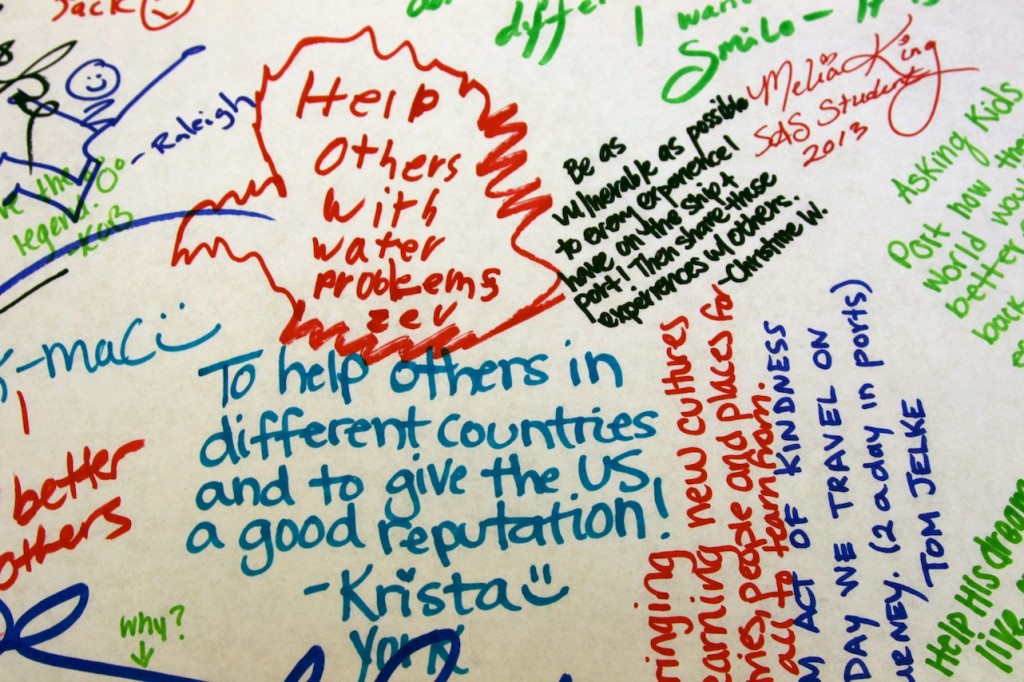 Jack
diff
I want
Smile - It is
Melia King
SAS Student
2013
- Raleigh
legend.
- KOB
Help
Others
With
water
problems
zev
Be as
vulnerable as possible
to every experience I
have on the ship +
port! Then share those
experiences w/ others.
- Christine W.
Asking Kids
Port how the
world wou
better
back
-mac
I
better
others
To help others in
different countries
and to give the US
a good reputation!
- Krista
York
why?
ringing new cultures
earning people and places for
all to learn from.
ACT OF KINDNESS
DAY WE TRAVEL ON
URNEY. (2 a day in ports)
TOM JELKE
Help His dream
live